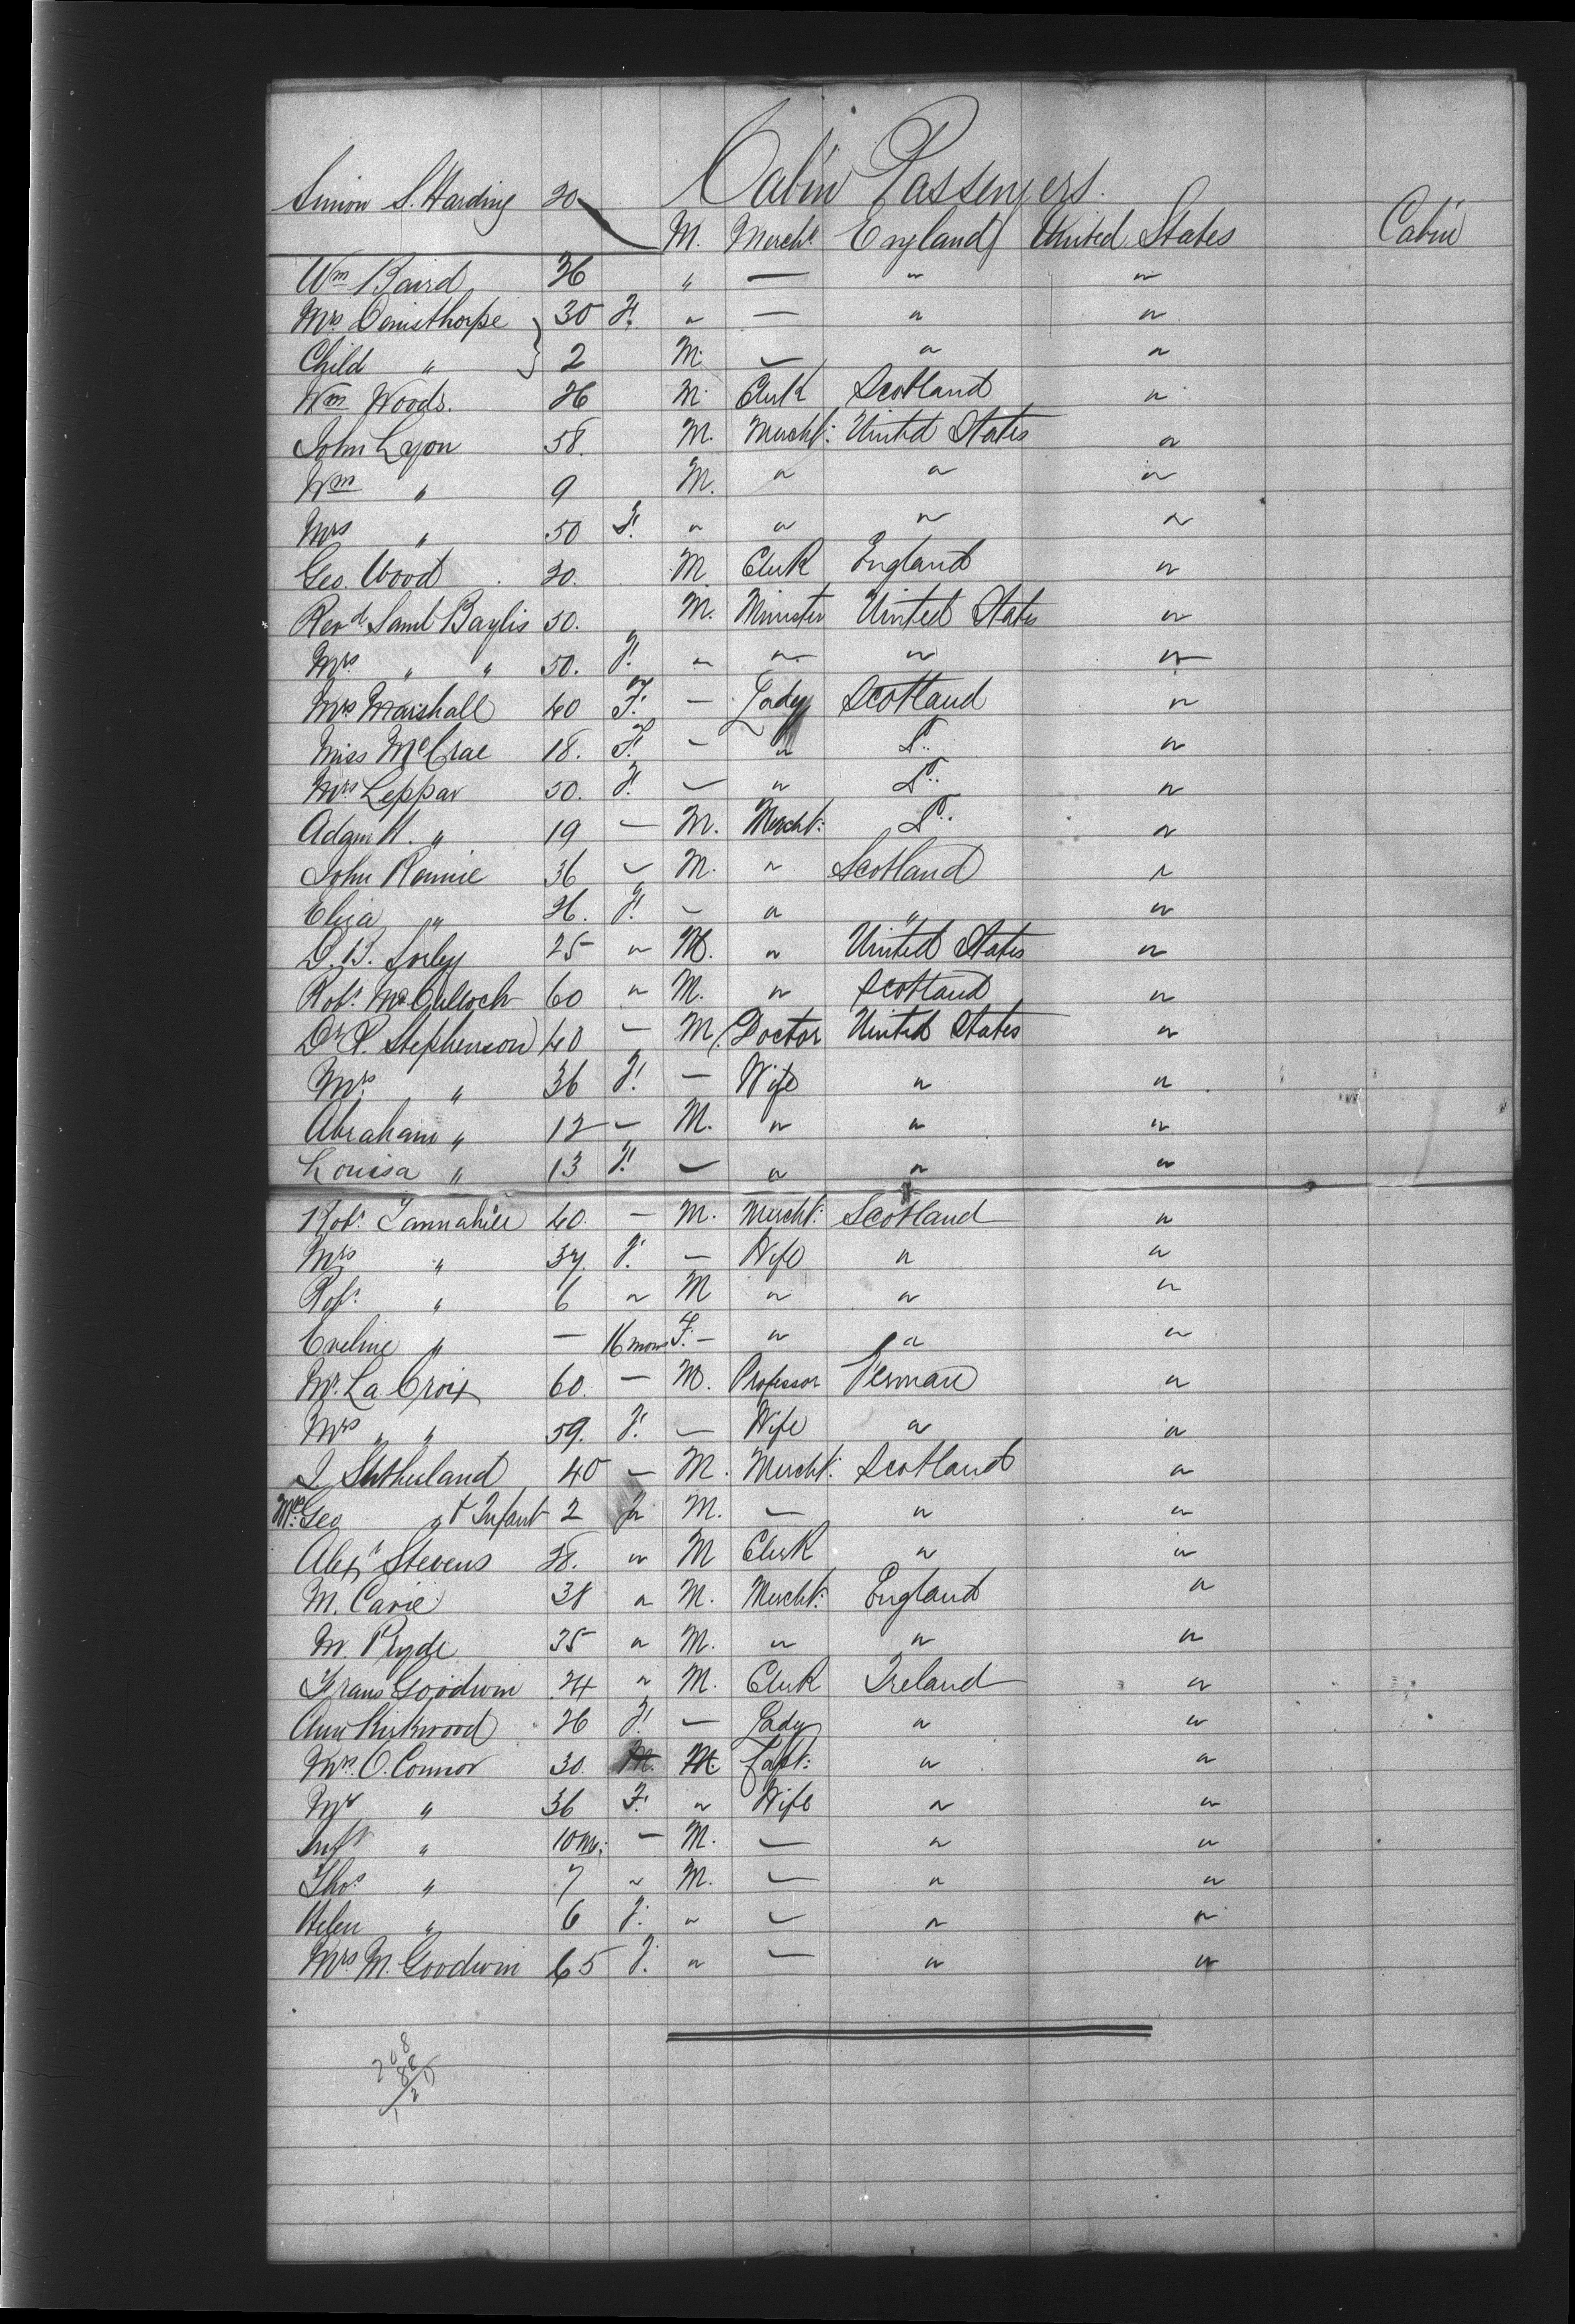 Cabin Passengers.
Simon S. Harding 20 M. Mercht England United States Cabin
Wm Baird 26 " — " "
Mrs Denisthorpe } 30 F. " — " "
Child " } 2 M. — " "
Wm Woods. 26 M. Clerk Scotland "
John Lyon 58. M. Mercht: United States "
Wm " 9 M. " " "
Mrs " 50 F. " " " "
Geo. Wood 20. M Clerk England "
Revd. Saml Baylis 50. M. Minister United States "
Mrs " " 50. F. " " " "
Mrs Marshall 40 F. — Lady Scotland "
Miss McCrae 18. F. — " Do. "
Mrs Leppar 50. F. — " Do. "
Adam H. " 19 — M. Mercht: Do. "
John Rennie 36 — M. " Scotland "
Eliza " 26. F. — " " "
D. B. Sorley 25 " M. " United States "
Robt. McCulloch 60 " M. " Scotland "
Dr R. Stephenson 40 — M. Doctor United States "
Mrs " 36 F. — Wife " "
Abraham " 12 — M. " " "
Louisa " 13 F. — " " "
Robt. Tannahill 40. — M. Mercht: Scotland "
Mrs " 37. F. — Wife " "
Robt. " 6 " M " " "
Eveline " — 16 mons F. — " " "
Mr. La Croix 60. — M. Professor German "
Mrs " " 59. F. — Wife " "
J. Sutherland 40 — M. Mercht: Scotland "
Mr. Geo " & Infant 2 " M. — " "
Alexr. Stevens 28. " M Clerk " "
M. Carie 38 " M. Mercht: England "
M. Pryde 35 " M. " " "
Frans Goodwin 24 " M. Clerk Ireland "
Ann Kirkwood 26 F. — Lady " "
Mr. O. Connor 30. M. M. Capt: " "
Mrs " 36 F. " Wife " "
Inft " 10 m. — M. — " "
Thos " 7 " M. — " "
Helen " 6 F. " — " "
Mrs M. Goodwin 65 F. " — " "
208
88
120